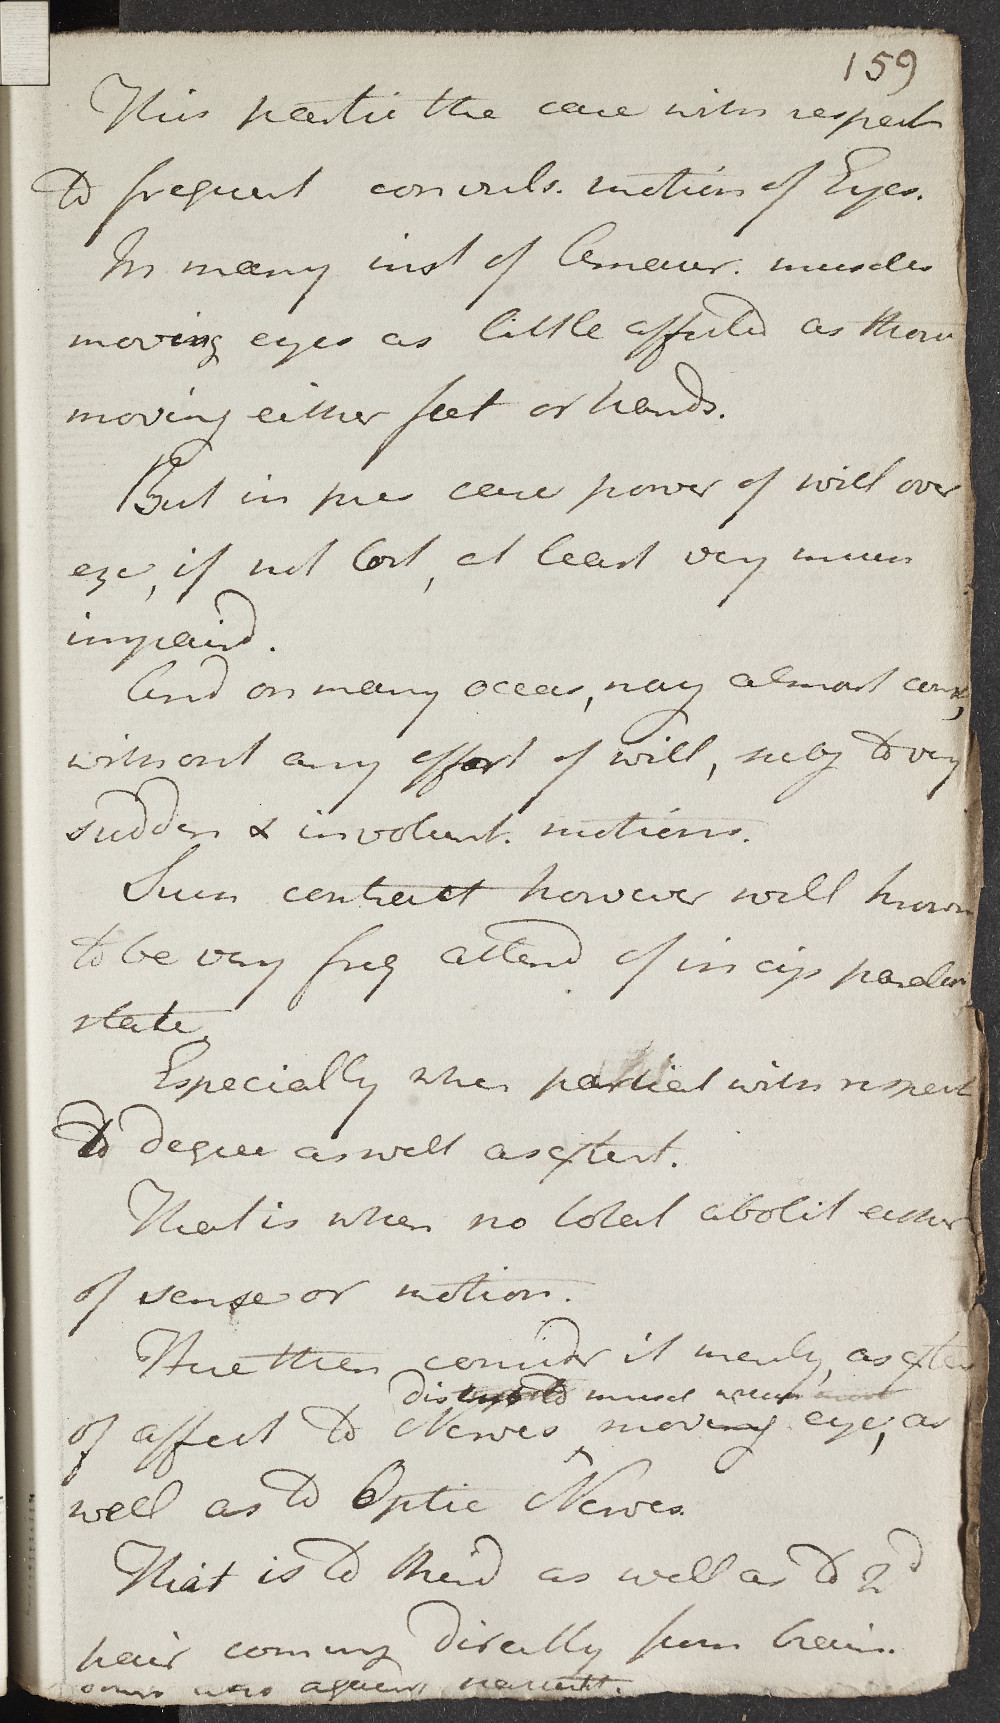 159
This partic the case with respect
to frequent convuls. motion of Eyes.
In many inst of Amaur. muscles
moving eyes as little affected as those
moving either feet or hands.
But in pres case power of will over
eye, if not lost, at least very much
impaird.
And on many occas, nay almost const,
without any effort of will, subj to very
sudden & involunt. motions.
Such contract however well known
to be very freq attend of incip paralyt
state.
Especially when partial with respect
to degree as well as extent.
That is when no total abolit either
of sense or motion.
Here then consider it merely, as exten
distrib to musc
of affect to Nerves moving eye, as
well as to Optic Nerves.
That is to third as well as to 2d
pair coming directly from brain.